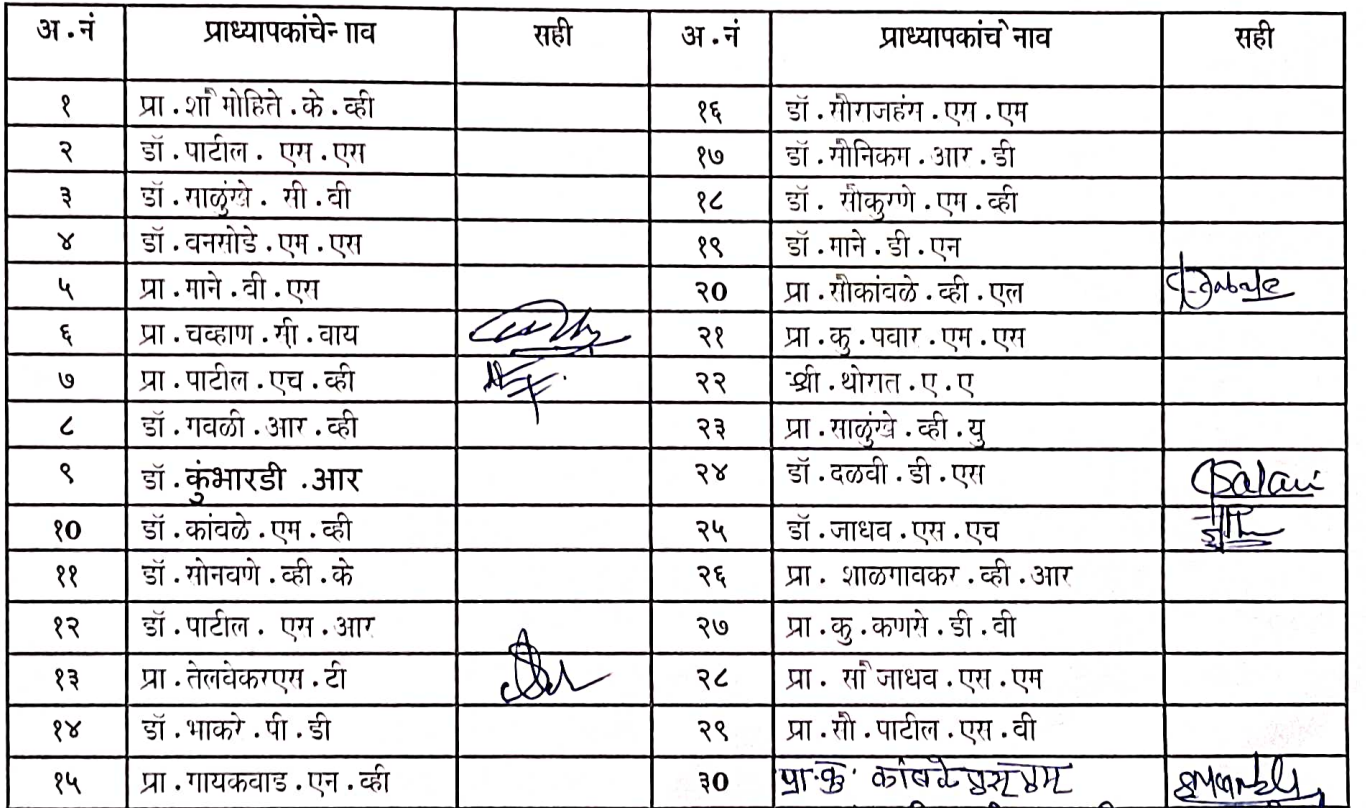 अ.नं प्राध्यापकांचेन ाव सही अ.नं प्राध्यापकांचे नाव सही
१ प्रा.सौ मोहिते.के.व्ही १६ डॉ.सौराजहंस.एस.एम
२ डॉ.पाटील. एस.एस १७ डॉ.सौनिकम.आर.डी
३ डॉ.साळुंखे. सी.वी १८ डॉ. सौकुरणे.एम.व्ही
४ डॉ.वनसोडे.एम.एस १९ डॉ.माने.डी.एन
५ प्रा.माने.वी.एस २० प्रा.सौकांवळे.व्ही.एल
६ प्रा.चव्हाण.सी.वाय २१ प्रा.कु.पवार.एम.एस
७ प्रा.पाटील.एच.व्ही २२ श्री.थोरात.ए.ए
८ डॉ.गवळी.आर.व्ही २३ प्रा.साळुंखे.व्ही.यु
९ डॉ.कुंभारडी.आर २४ डॉ.दळवी.डी.एस
१० डॉ.कांवळे.एम.व्ही २५ डॉ.जाधव.एस.एच
११ डॉ.सोनवणे.व्ही.के २६ प्रा. शाळगावकर.व्ही.आर
१२ डॉ.पाटील. एस.आर २७ प्रा.कु.कणसे.डी.वी
१३ प्रा.तेलवेकरएस.टी २८ प्रा. सौ जाधव.एस.एम
१४ डॉ.भाकरे.पी.डी २९ प्रा.सौ.पाटील.एस.वी
१५ प्रा.गायकवाड.एन.व्ही ३० प्रा.कु. कांबळे एस एम